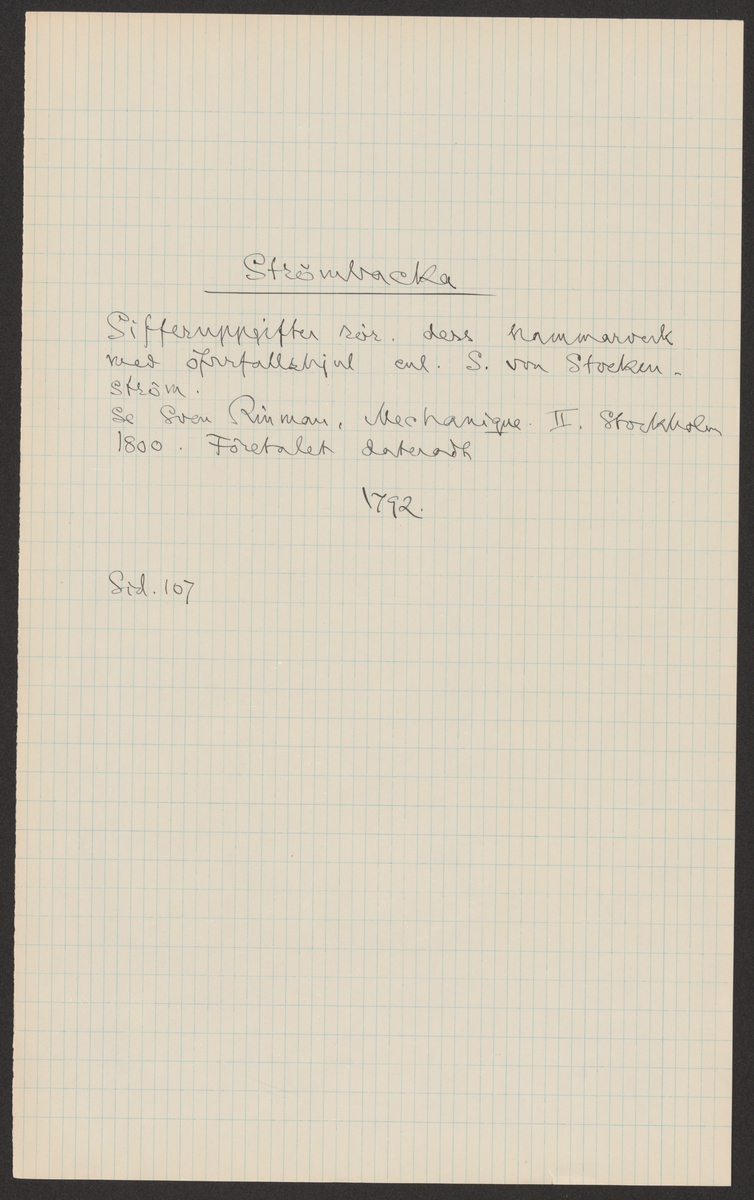 Strömbacka
Sifferuppgifter rör. dess hammarverk
med öfverfallshjul enl. S. von Stocken-
ström.
Se Sven Rinman, Mechanique. II. Stockholm
1800. Företalet dateradt
1792.
Sid. 107